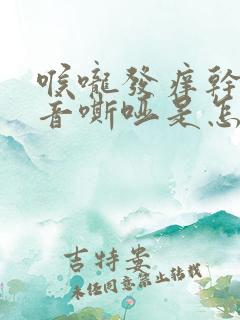 喉嚨發痒幹
音嘶啞是怎
吉特婁
未经同意禁止转载